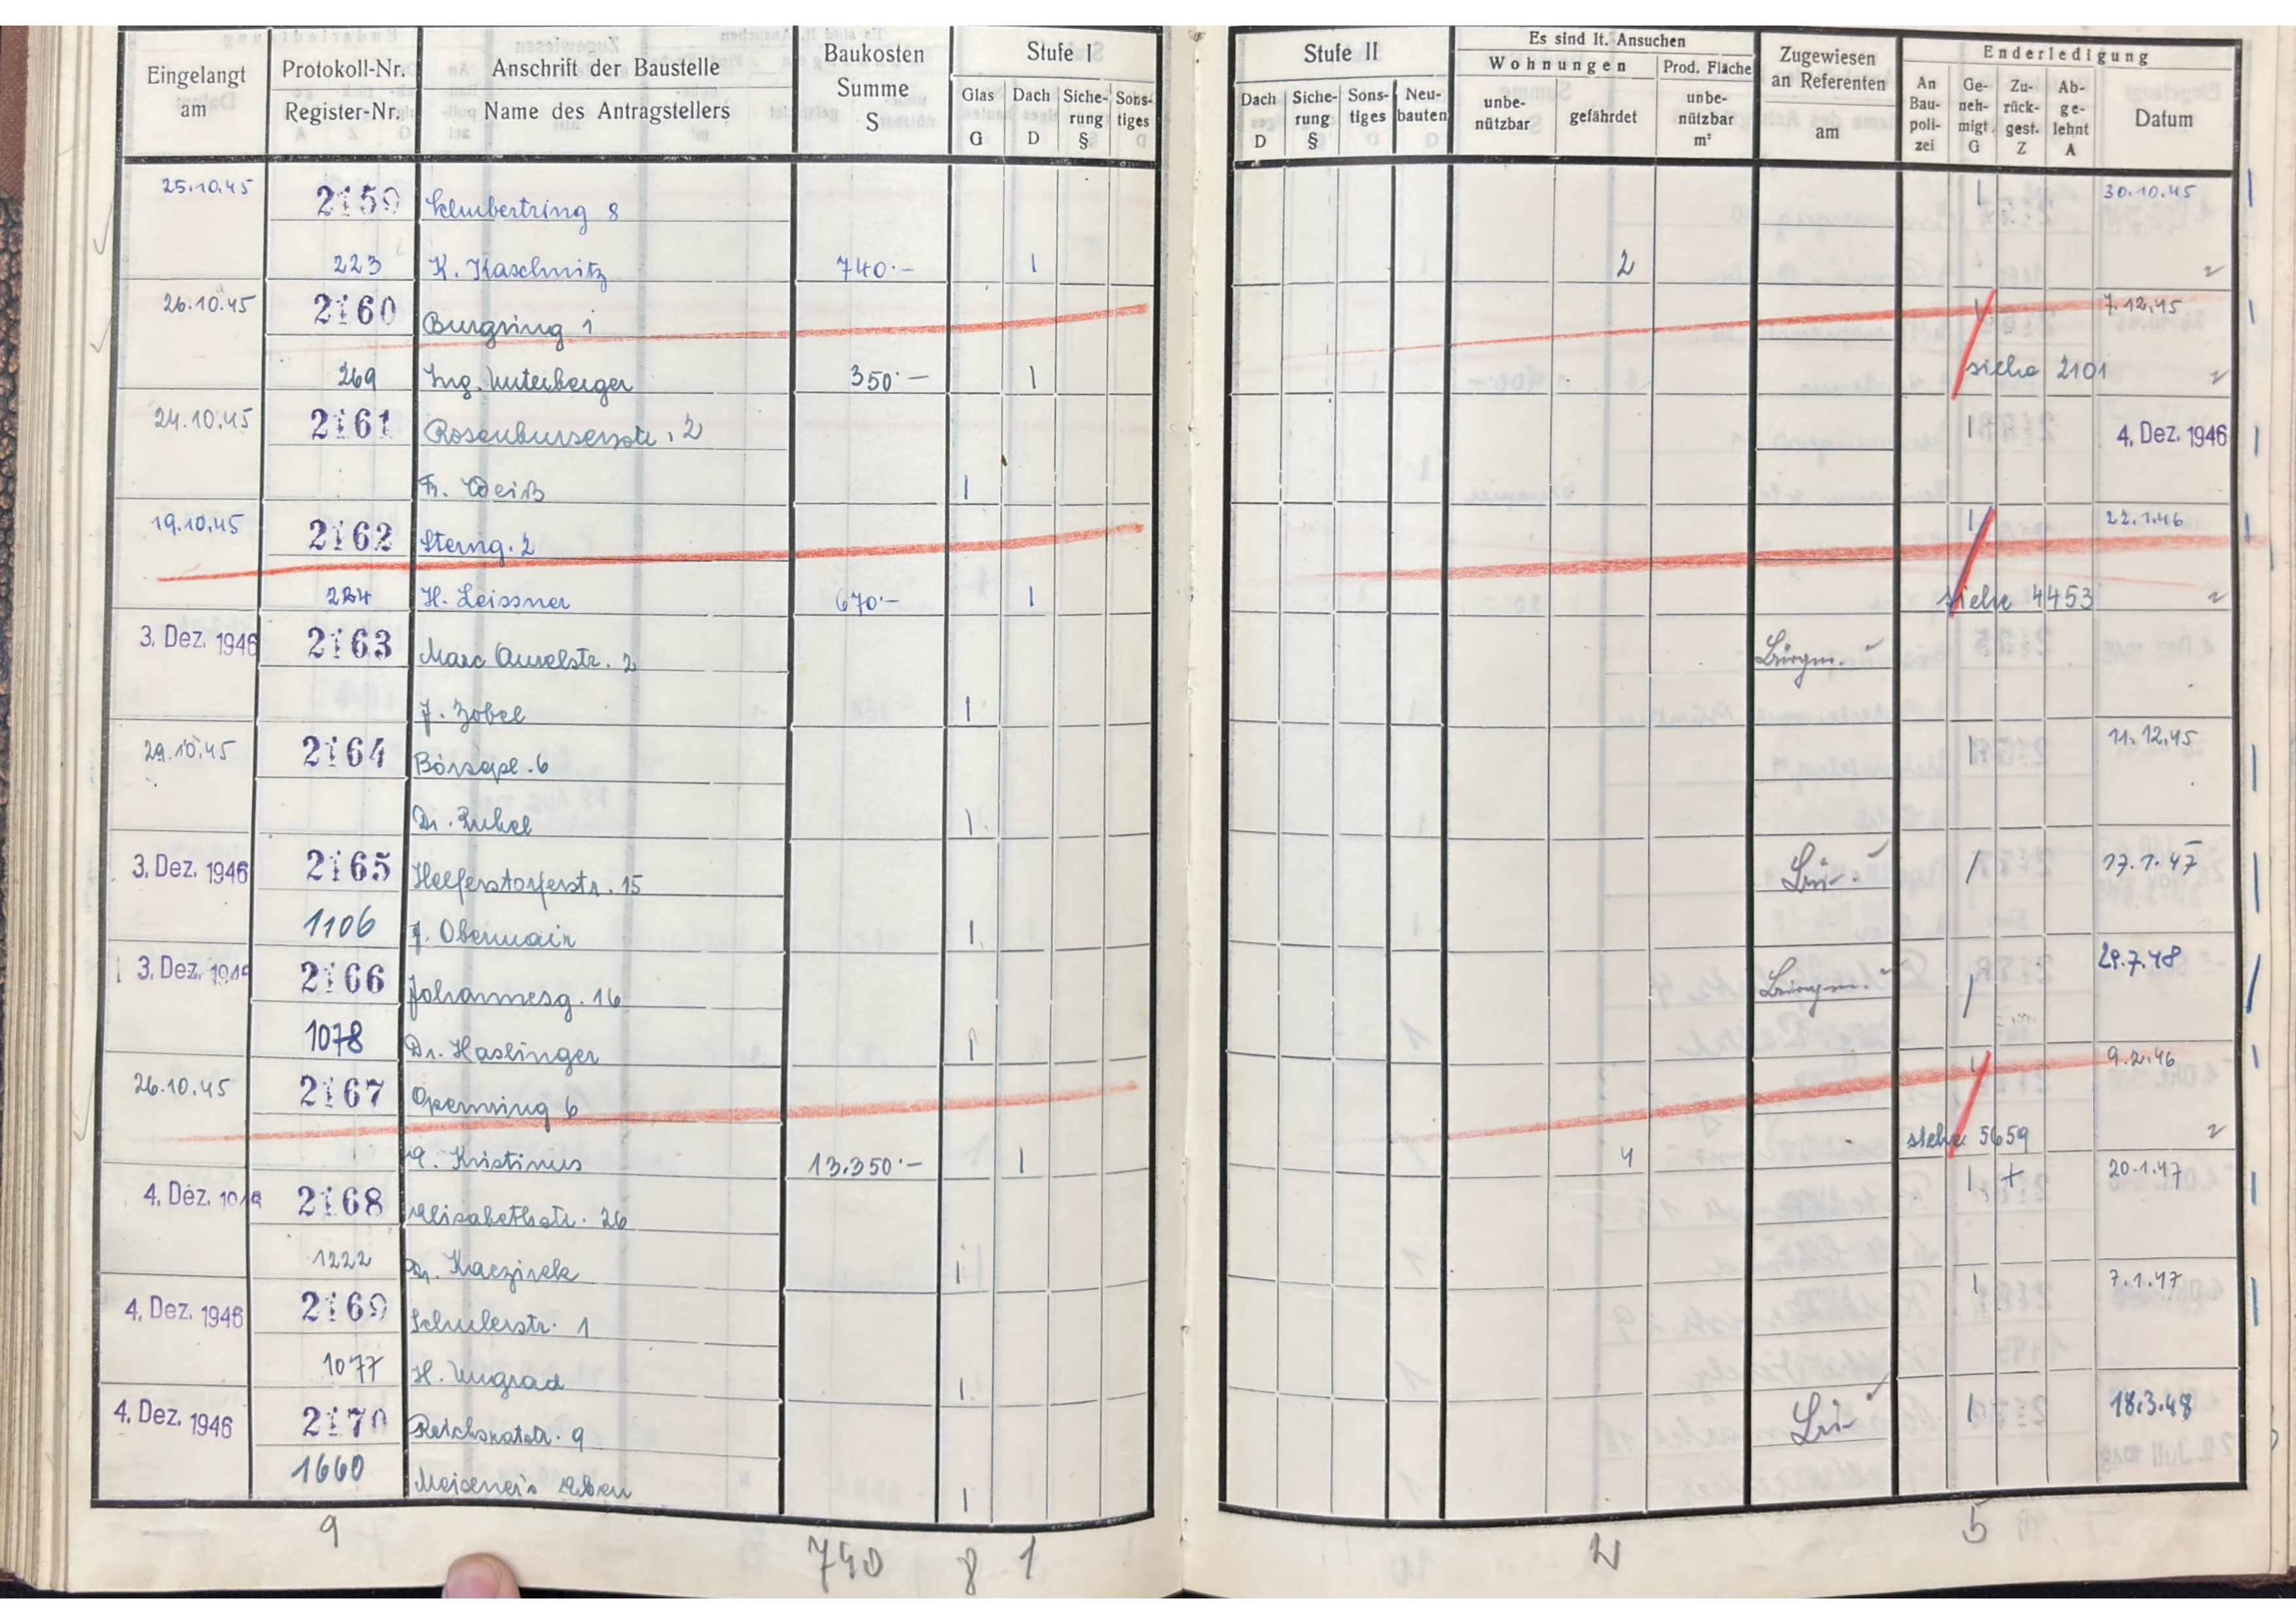 Eingelangt am | Protokoll-Nr. Register-Nr. | Anschrift der Baustelle Name des Antragstellers | Baukosten Summe S | Stufe I | Glas G | Dach D | Siche-rung § | Sons-tiges
Stufe II | Dach D | Siche-rung § | Sons-tiges | Neu-bauten | Es sind lt. Ansuchen | Wohnungen | unbe-nützbar | gefährdet | Prod. Fläche unbe-nützbar m² | Zugewiesen an Referenten am | Enderledigung | An Bau-poli-zei | Ge-neh-migt G | Zu-rück-gest. Z | Ab-ge-lehnt A | Datum
25.10.45 2159 Schubertring 8 | 30.10.45
223 K. Kaschnitz 740.- | 2
26.10.45 2160 Burgring 1 | 7.12.45
269 Ing. Unterberger 350.- | siehe 2101
24.10.45 2161 Rosenburserstr. 2 | 4. Dez. 1946
Fr. Weiß |
19.10.45 2162 Sterng. 2 | 22.1.46
H. Leissner 670.- | siehe 4453
3. Dez. 1946 2163 Marc Aurelstr. 2 | Bürgm.
J. Zobel |
29.10.45 2164 Börsepl. 6 | 11.12.45
Dr.
3. Dez. 1946 2165 Helferstorferstr. 15 | 17.1.47
1106 J. Obermair |
3. Dez. 1946 2166 Johannesg. 16 | Bürgm. 29.7.48
1078 Dr. Haslinger |
26.10.45 2167 Opernring 6 | 9.2.46
A. Kristinus 13.350.- | 4 siehe 5659
4. Dez. 1946 2168 Elisabethstr. 26 | + 20.1.47
1222 Dr. Kaczirek
4. Dez. 1946 2169 Schulerstr. 1 | 7.1.47
1077 H. Ungrad |
4. Dez. 1946 2170 Reichsratstr. 9 | 18.3.48
1660 Erben |
9 740 8 1 2 5